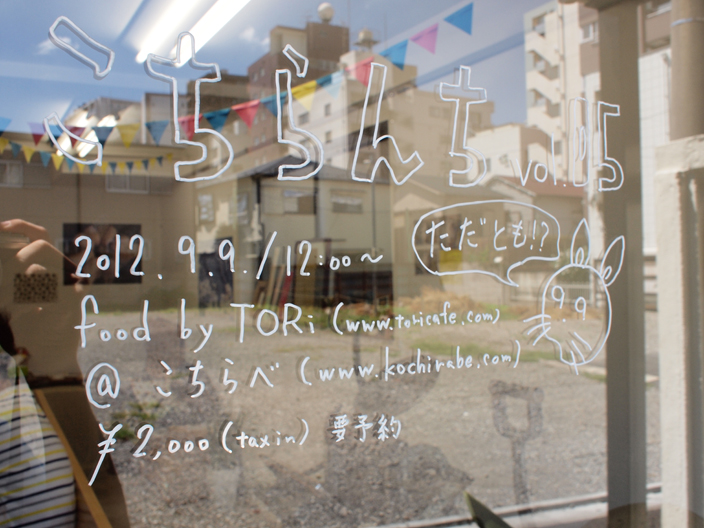 こちらんち vol.05
ただとも!?
2012. 9.9./12:00〜
food by TORi (www.toricafe.com)
@ こちらべ (www.kochirabe.com)
¥2,000 (tax in) 要予約